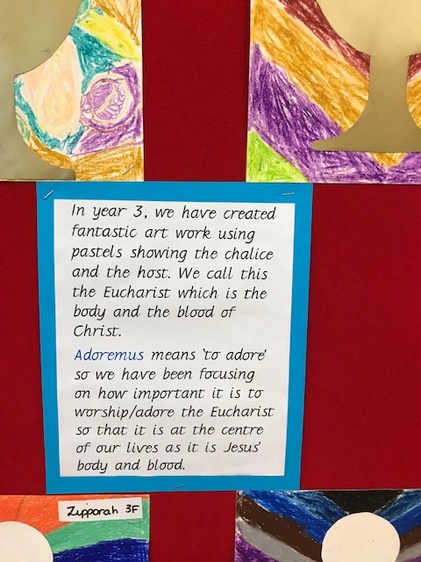 In year 3, we have created
fantastic art work using
pastels showing the chalice
and the host. We call this
the Eucharist which is the
body and the blood of
Christ.
Adoremus means 'to adore'
so we have been focusing
on how important it is to
worship/adore the Eucharist
so that it is at the centre
of our lives as it is Jesus'
body and blood.
Zipporah 3F